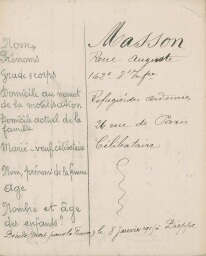 Nom, Masson
Prénoms René Auguste
Grade & corps 162e d'Infie
Domicile au moment Réfugié des ardennes,
de la mobilisation
Domicile actuel de la 26 rue de Paris
famille
Marié - veuf célibataire Célibataire
Nom, prénoms de la femme
Age
Nombre et âge
des enfants
le 8 janvier 1915 Dieppe